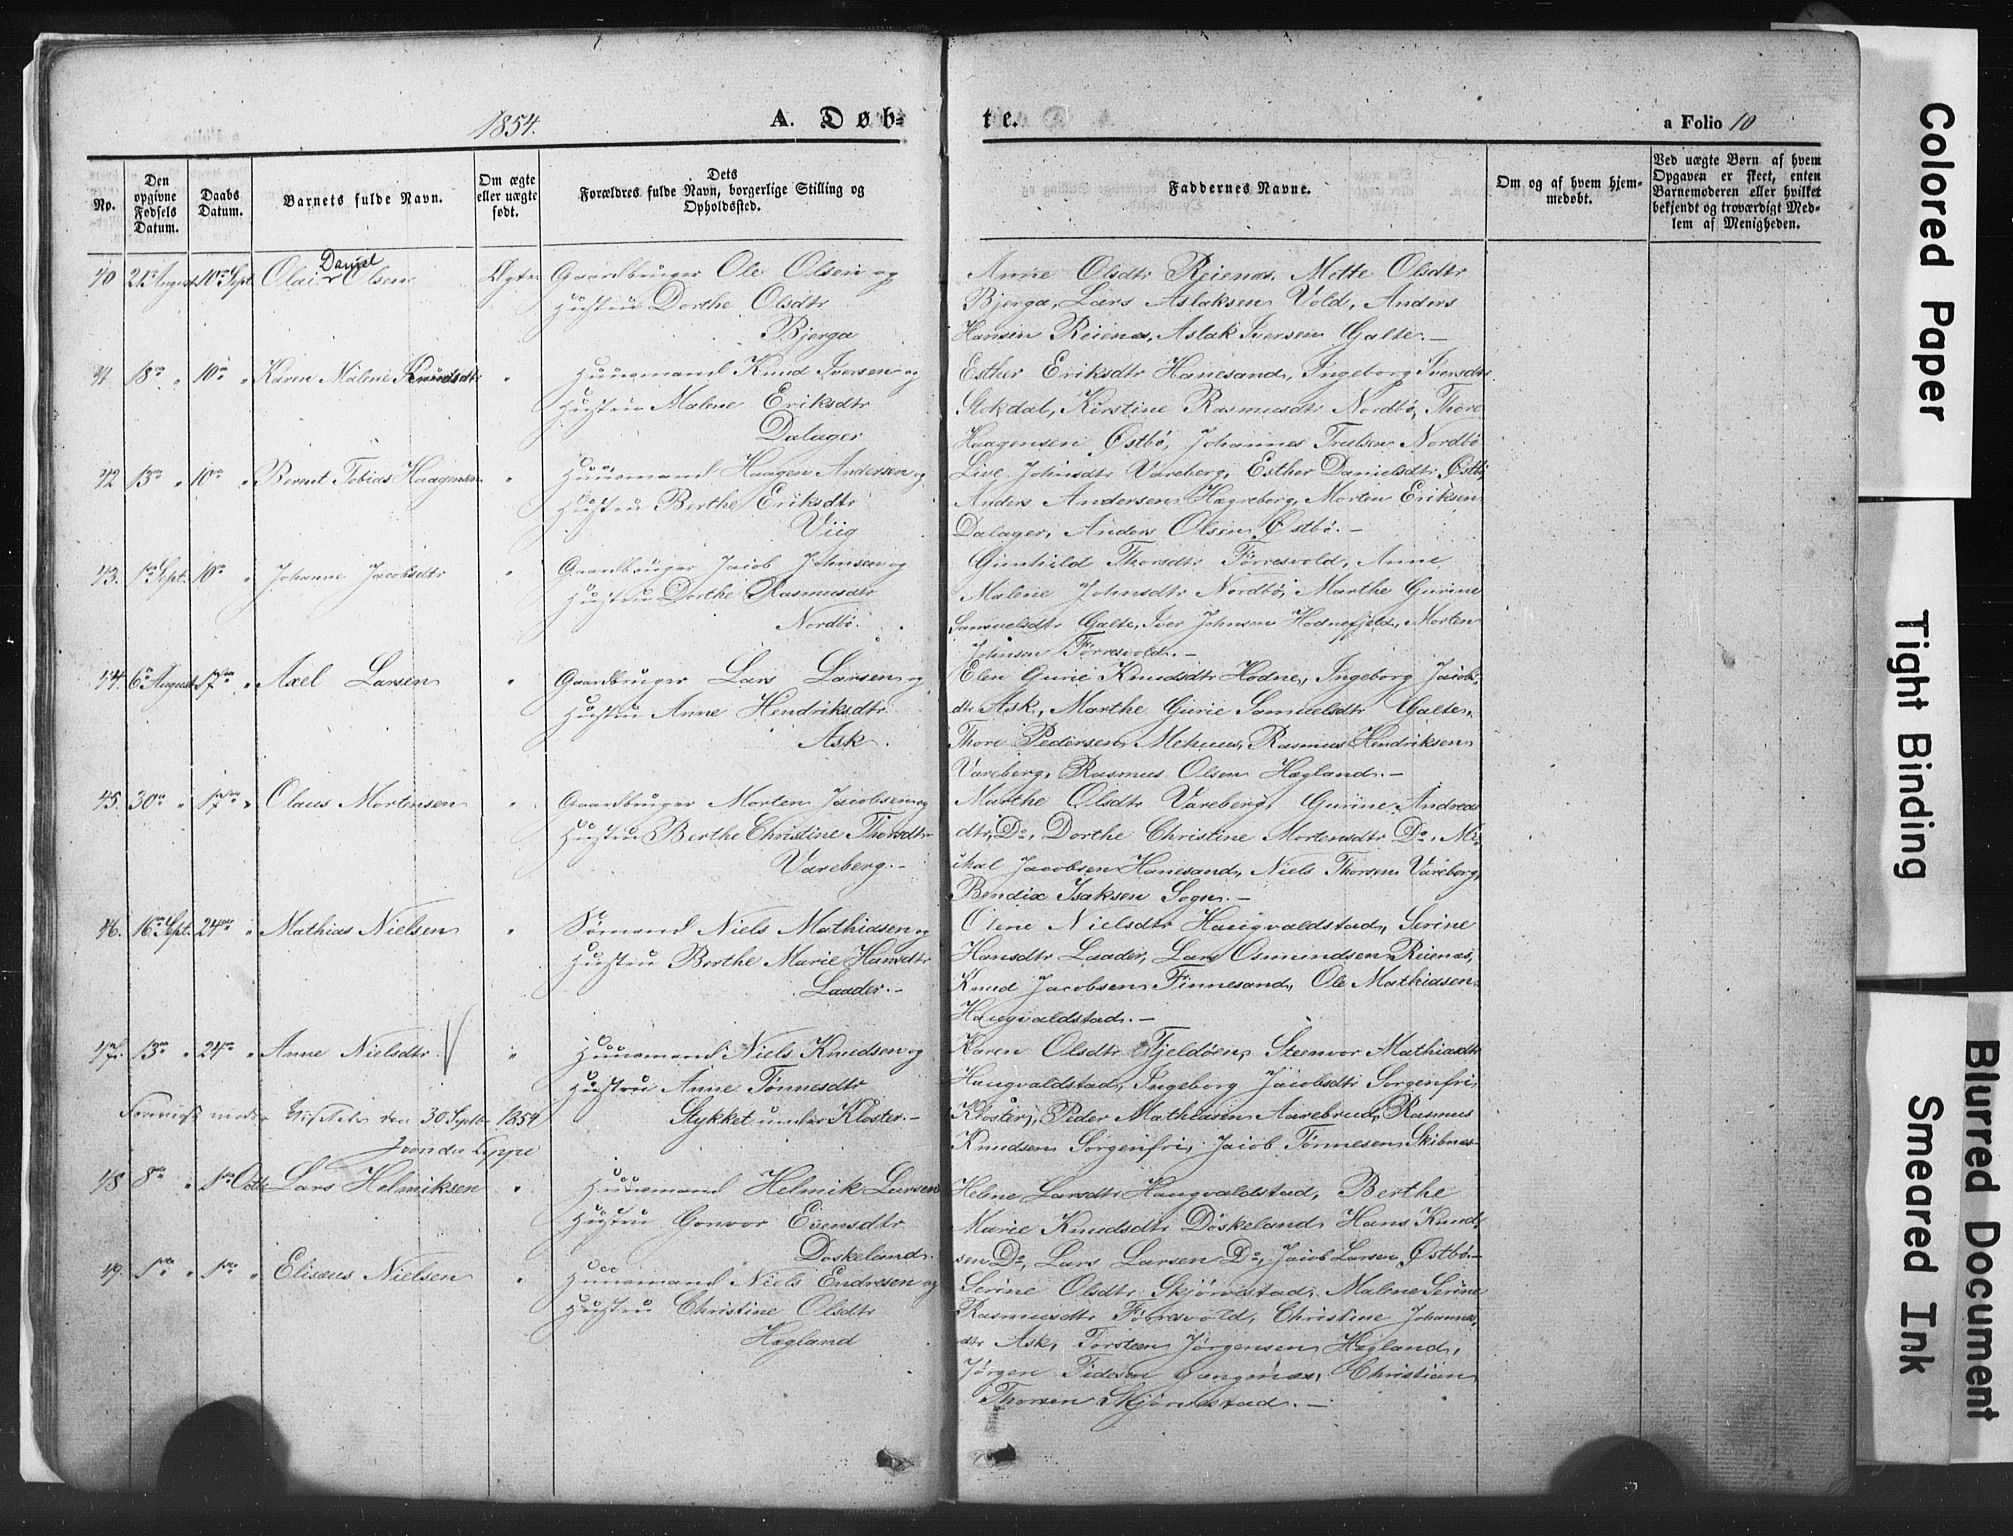 1854.
A. Døb-
te.
a Folio 10
No.
Den opgivne Fødsels Datum.
Daabs Datum.
Barnets fulde Navn.
Om ægte eller uægte født.
Dets Forældres fulde Navn, borgerlige Stilling og Opholdssted.
Faddernes Navne.
Om og af hvem hjem-
medøbt.
Ved uægte Børn af hvem
Opgaven er skeet, enten
Barnemoderen eller hvilket
bekjendt og troværdigt Med-
lem af Menigheden.
40 21de August 10de Sept. Olai Daniel Olsen Ægte Gaardbruger Ole Olsen og
Hustru Dorthe Olsdtr
Bjerga
Anne Olsdtr Reienæs, Mette Olsdtr
Bjerga, Lars Aslaksen Vold, Anders
Hansen Reienæs, Aslak Iversen Galte. –
41 18de " 10de " Karen Malene Knudsdtr " Huusmand Knud Iversen og
Hustru Malene Eriksdtr
Dalager
Esther Eriksdtr Hanesand, Ingeborg Iversdtr
Stokdal, Kirstine Rasmusdtr Nordbø, Thore
Haagensen Østbø, Johannes Truelsen Nordbø
42 13de " 10de " Berent Tobias Haagensen " Huusmand Haagen Andersen og
Hustru Berthe Eriksdtr
Viig
Live Johnsdtr Vareberg, Esther Danielsdtr Østbø,
Anders Andersen Hegreberg, Morten Eriksen
Dalager, Anders Olsen Østbø. –
43. 1de Sept. 10de " Johanne Jacobsdtr " Gaardbruger Jacob Johnsen og
Hustru Dorthe Rasmusdtr
Nordbø.
Gunhild Thorsdtr Førresvold, Anne
Malene Johnsdtr Nordbø, Marthe Gurine
Samuelsdtr Galte, Iver Johnsen Hodnefjeld, Morten
Johnsen Førresvold. –
44. 6te August 17de " Axel Larsen " Gaardbruger Lars Larsen og
Hustru Anne Hendriksdtr
Ask.
Elen Gurie Knudsdtr Hodne, Ingeborg Jacobs-
dtr Ask, Marthe Gurie Samuelsdtr Galte,
Thore Pedersen Mehuus, Rasmus Hendriksen
Vareberg, Rasmus Olsen Hegland. –
45. 30de " 17de " Olaus Mortensen " Gaardbruger Morten Jacobsen og
Hustru Berthe Christine Thorsdtr
Vareberg. –
Marthe Olsdtr Vareberg, Gurine Andreas
dtr, Do, Dorthe Christine Mortensdtr Do, Mi-
chal Jacobsen Hanesand, Niels Thorsen Vareberg,
Bendix Isaksen Sogn. –
46. 16de Sept. 24de " Mathias Nielsen " Sømand Niels Mathiasen og
Hustru Berthe Marie Hansdtr
Laader. –
Olene Nielsdtr Haugvaldstad, Serine
Hansdtr Laader, Lars Osmundsen Reienæs,
Knud Jacobsen Finnesand, Ole Mathiasen
Haugvaldstad. –
47. 13de " 24de " Anne Nielsdtr " Huusmand Niels Knudsen og
Hustru Anne Tønnesdtr
Stykket under Kloster. –
Karen Olsdtr Fjeldøen, Stenvor Mathiasdtr
Haugvaldstad, Ingeborg Jacobsdtr Sorgenfri
Kloster, Peder Mathiasen Aarebrud, Rasmus
Knudsen Sorgenfri, Jacob Tønnesen Skibnes
Foreviist under Visitats den 30 Septbr 1854
48 8de " 1de Octbr Lars Helmiksen " Huusmand Helmik Larsen
Hustru Gonvor Evensdtr
Døskeland.
Helene Larsdtr Haugvaldstad, Berthe
Marie Knudsdtr Døskeland, Hans Knud-
sen Do, Lars Larsen Do, Jacob Larsen Østbø. –
49. 1de " 1de " Elisæus Nielsen " Huusmand Niels Endresen og
Hustru Christine Olsdtr
Hegland
Serine Olsdtr Skjørvestad, Malene Serine
Rasmusdtr Førresvold, Christine Johannes
dtr Ask, Torsteen Jørgensen Hegland,
Jørgen Christian
Thorsen Skjørvestad. –
Colored Paper
Tight Binding
Blurred Document
Smeared Ink